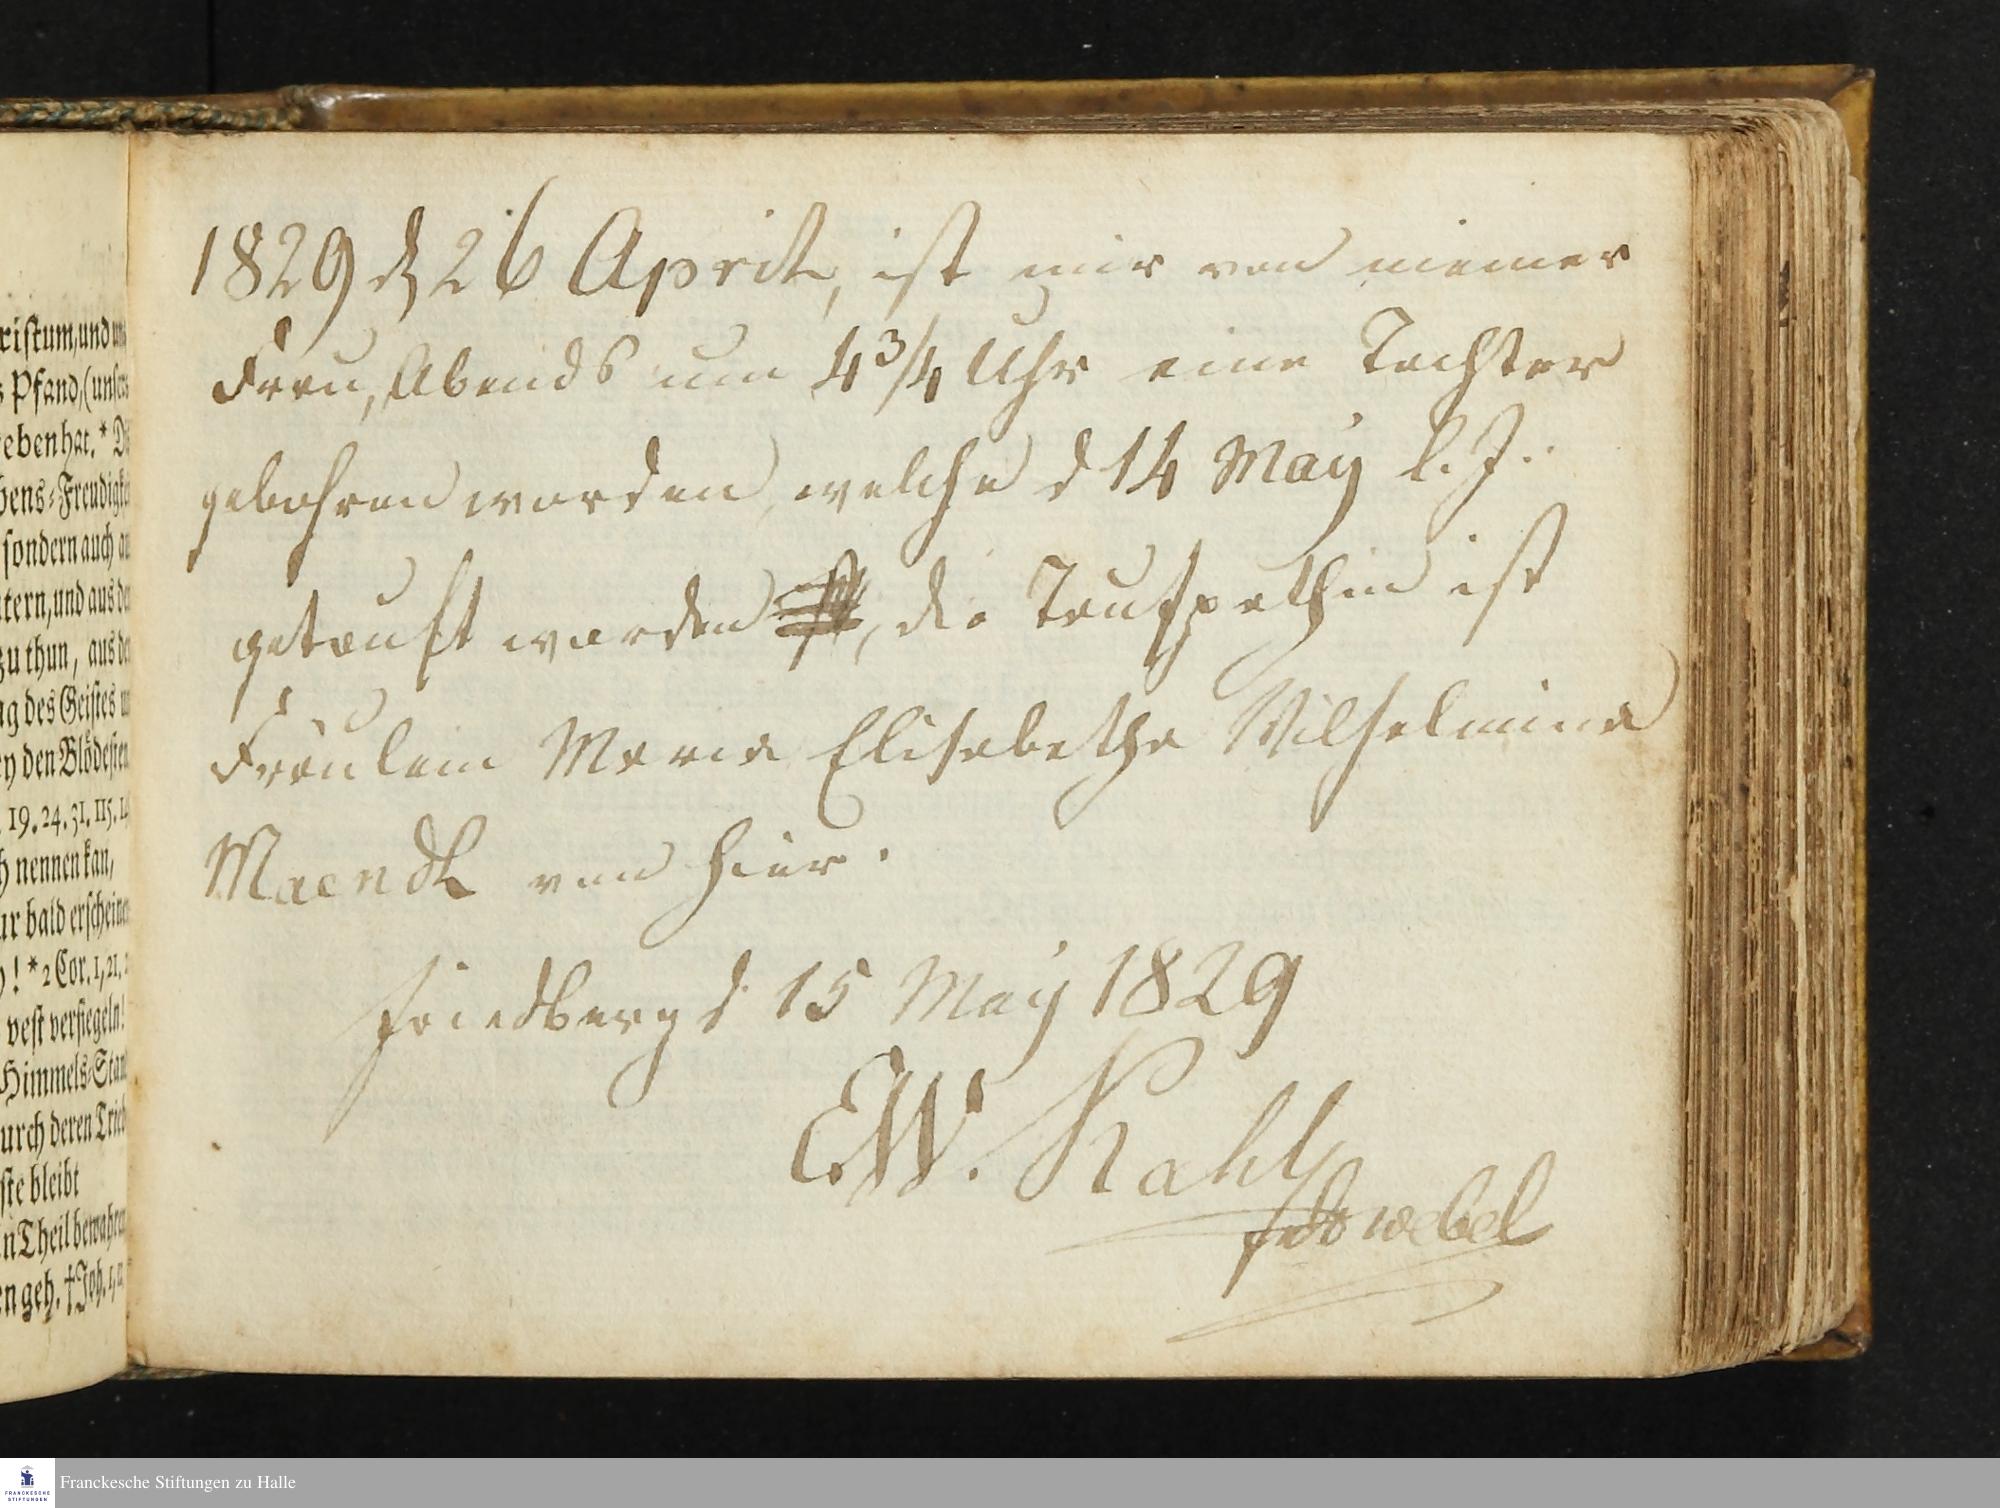 ristum, und
s Pfand, (unsers
ebenhat. *
bens-Freudigkei
sondern auch
tern, und aus
zu thun, aus
ng des Geistes
ey den Blödesten
19. 24. 31. 115.
h nennen kan,
ur bald erscheinen
! * 2 Cor. 1, 21,
vest versiegeln!
Himmels-Stan
urch deren Trieb
ste bleibt
n Theil bewahren
en geh. † Joh. 1,
1829 d 26 April, ist mir von meiner
Frau, Abends um 4 3/4 Uhr eine Tochter
gebohren worden, welche d 14 May l. J.
getauft worden, die Taufpathin ist
Fräulein Maria Elisabetha Wilhelmina
von hier.
Friedberg d. 15 May 1829
EW. Kahl
Feldwebel
FRANCKESCHE
STIFTUNGEN
Franckesche Stiftungen zu Halle